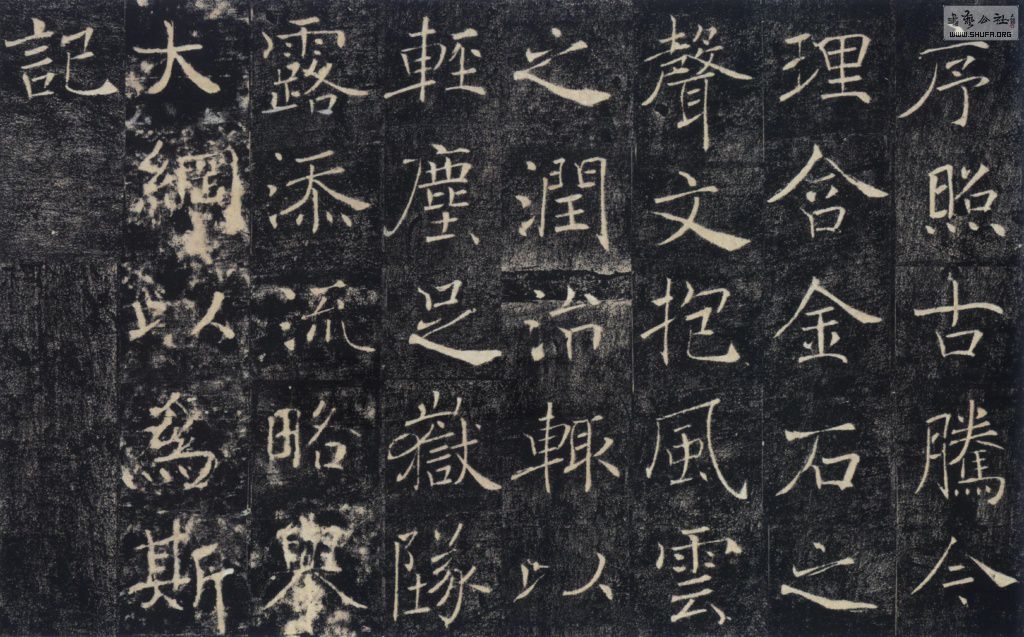 序照古騰今
理含金石之
聲文抱風雲
之潤治輒以
輕塵足嶽隊
露添流略舉
大綱以爲斯
記
WWW.SHUFA.ORG